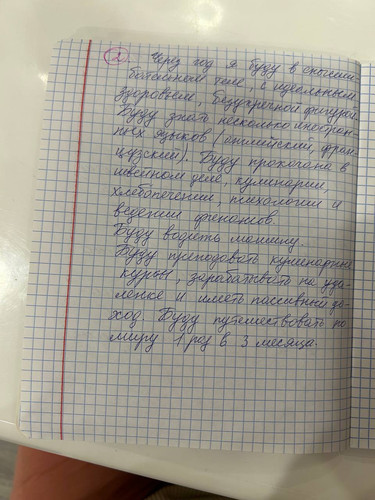 2 Через год я буду в
богатом теле, с идеальным
здоровьем, безупречной фигурой.
Буду знать несколько иностран-
ных языков (английский, фран-
цузский). Буду прокачана в
швейном деле, кулинарии,
хлебопечении, психологии и
ведении финансов.
Буду водить машину.
Буду преподавать кулинарные
курсы, зарабатывать на уда-
ленке и иметь пассивный до-
ход. Буду путешествовать по
миру 1 раз в 3 месяца.